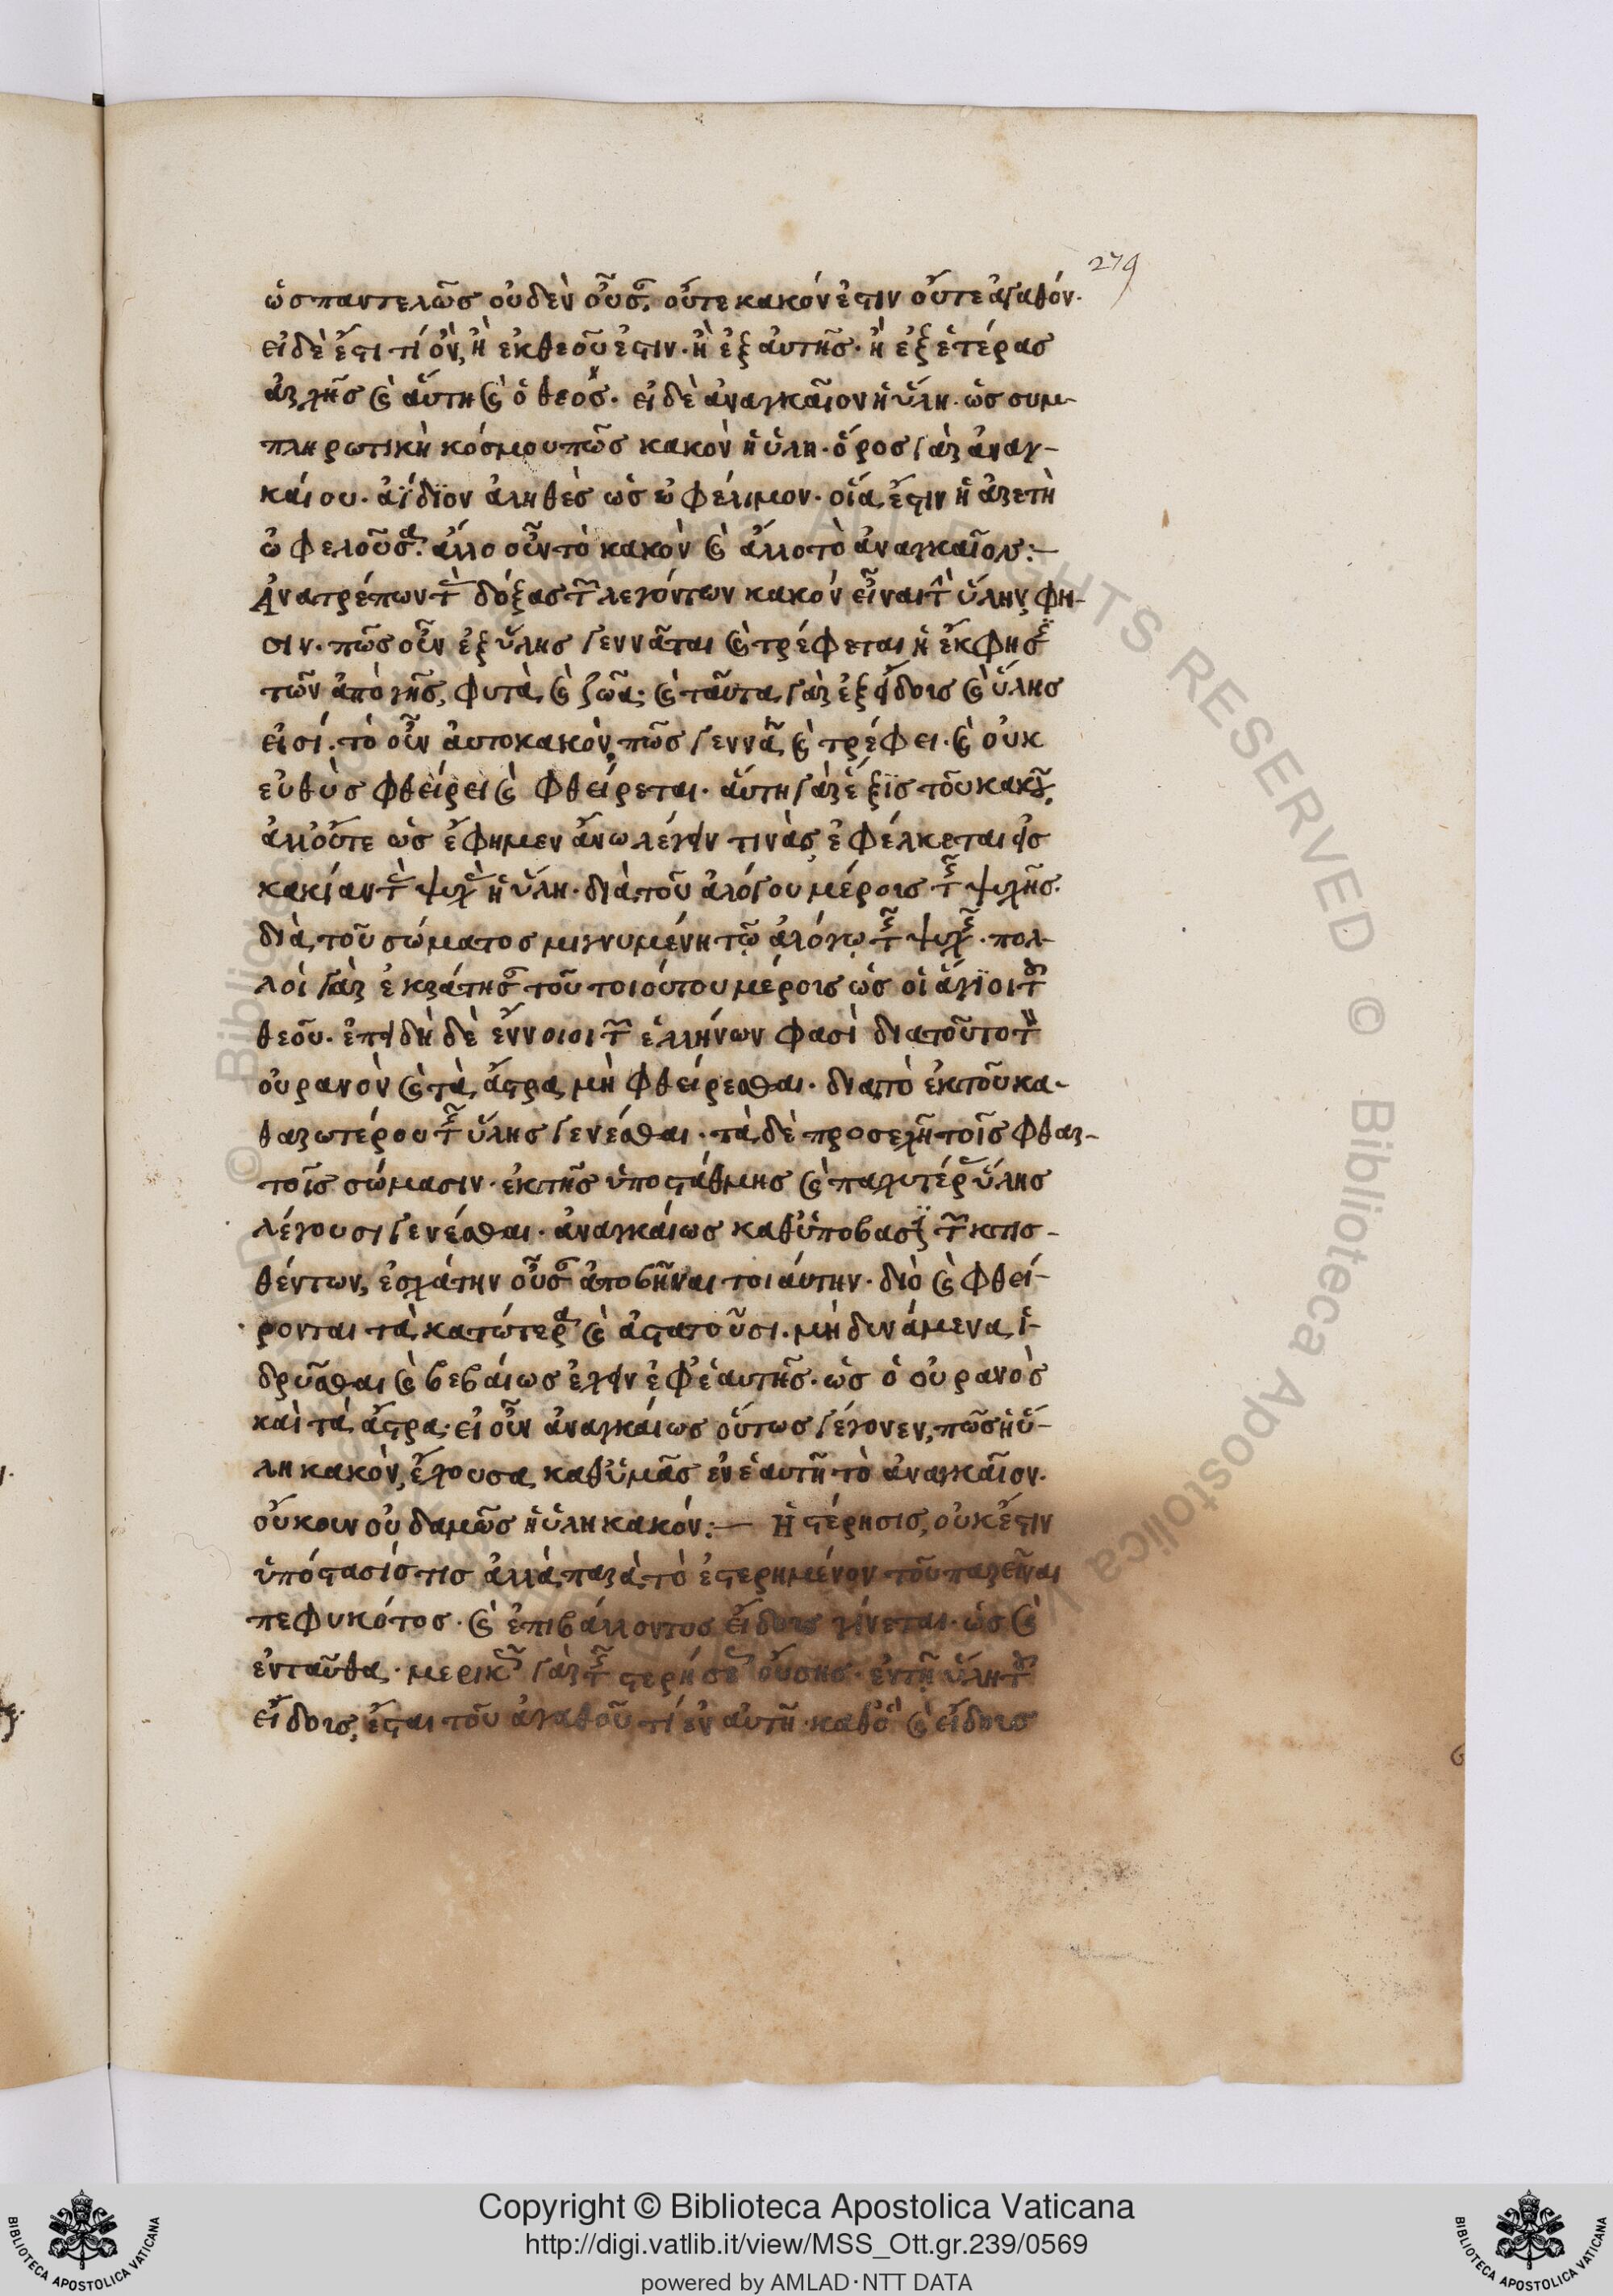 279
ὡσ παντελῶσ οὐδὲν οὖσα, οὔτε κακόν ἐστιν οὔτε ἀγαθόν.
εἰ δὲ ἔστι τί ὄν, ἢ ἐκ θεοῦ ἐστιν. ἢ ἐξ αὐτῆσ. ἢ ἐξ ἑτέρασ
ἀρχῆσ καὶ αὕτη καὶ ὁ θεοσ. εἰ δὲ ἀναγκαῖον ἡ ὕλη. ὡσ συμ-
πληρωτικὴ κόσμου πῶσ κακὸν ἡ ὕλη. ὅροσ γὰρ ἀναγ-
καίου. ἀΐδϊον ἀληθὲσ ὡσ ὠφέλιμον. οἵα ἐστιν ἡ ἀρετὴ
ὠφελοῦσα. ἄλλο οὖν τὸ κακὸν καὶ ἄλλο τὸ ἀναγκαῖον:—
Ἀνατρέπων τὰσ δόξασ τῶν λεγόντων κακόν εἶναι τὴν ὕλην, φη-
σιν. πῶσ οὖν ἐξ ὕλησ γεννᾶται καὶ τρέφεται ἡ ἔκφησισ
τῶν ἀπὸ γῆσ, φυτὰ καὶ ζῶα; καὶ ταῦτα γὰρ ἐξ εἴδουσ καὶ ὕλησ
εἰσί. τὸ οὖν αὐτοκακὸν, πῶσ γεννᾶ καὶ τρέφει. καὶ οὐκ
εὐθὺσ φθείρει καὶ φθείρεται. αὕτη γὰρ ἕξϊσ τοῦ κακοῦ.
ἀλλ' οὔτε ὡσ ἔφημεν ἄνω λέγειν τινὰσ, ἐφέλκεται εἰσ
κακίαν τὴν ψυχὴν ἡ ὕλη. διὰ τοῦ ἀλόγου μέρουσ τῆσ ψυχῆσ.
διὰ τοῦ σώματοσ μιγνυμένη τῷ ἀλόγῳ τῆσ ψυχῆσ. πολ-
λοὶ γὰρ ἐκράτησαν τοῦ τοιούτου μέρουσ ὡσ οἱ ἅγϊοι τοῦ
θεοῦ. ἐπειδὴ δὲ ἔννοιοι τῶν ἑλλήνων φασὶ διατοῦτο τὸν
οὐρανὸν καὶ τὰ ἄστρα μὴ φθείρεσθαι. διὰ τὸ ἐκ τοῦ κα-
θαρωτέρου τῆσ ὕλησ γενέσθαι. τὰ δὲ προσεχῆ τοῖσ φθαρ-
τοῖσ σώμασιν. ἐκ τῆσ ὑποστάθμησ καὶ παχυτέρασ ὕλησ
λέγουσι γενέσθαι. ἀναγκαίωσ καθ' ὑπόβασιν τῶν κτισ-
θέντων, ἐσχάτην οὖσαν ἀποβῆναι τοιάυτην. διὸ καὶ φθεί-
ρονται τὰ κατώτερα καὶ ἀστατοῦσι. μὴ δυνάμενα ἱ-
δρῦσθαι καὶ βεβαίωσ ἔχειν ἐφ' ἑαυτῆσ. ὡσ ὁ οὐρανὸσ
καὶ τὰ ἄστρα. εἰ οὖν ἀναγκαίωσ οὕτωσ γέγονεν, πῶσ ἡ ὕ-
λη κακὸν, ἔχουσα καθ' ὑμᾶσ ἐν ἑαυτῆ τὸ ἀναγκαῖον.
οὔκουν οὐδαμῶσ ἡ ὕλη κακόν:— Ἡ στέρησισ, οὐκ ἔστιν
ὑπόστασίσ τισ ἀλλὰ παρὰ τὸ ἐστερημένον τοῦ παρεῖναι
πεφυκότοσ. καὶ ἐπιβάλλοντοσ εἴδουσ γίνεται. ὡσ καὶ
ἐνταῦθα. μερικῆσ γὰρ τῆσ στερήσεωσ οὔσησ. ἐν τῇ ὕλη τοῦ
εἴδουσ, ἔσται τοῦ ἀγαθοῦ τί ἐν αὐτῆ. καθὸ καὶ εἴδουσ
© Biblioteca Apostolica Vaticana ALL RIGHTS RESERVED © Biblioteca Apostolica Vaticana
Copyright © Biblioteca Apostolica Vaticana
http://digi.vatlib.it/view/MSS_Ott.gr.239/0569
powered by AMLAD·NTT DATA
BIBLIOTECA APOSTOLICA VATICANA
BIBLIOTECA APOSTOLICA VATICANA